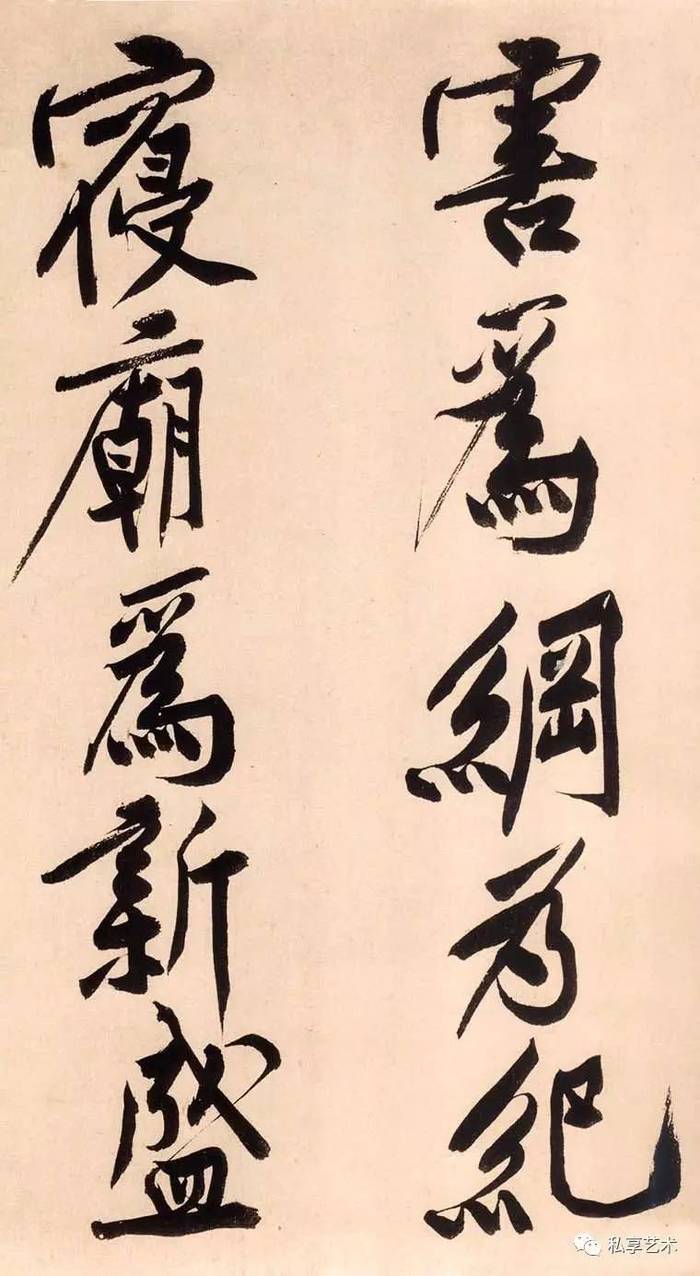 害爲綱為紀
寑廟爲新盛
私享艺术